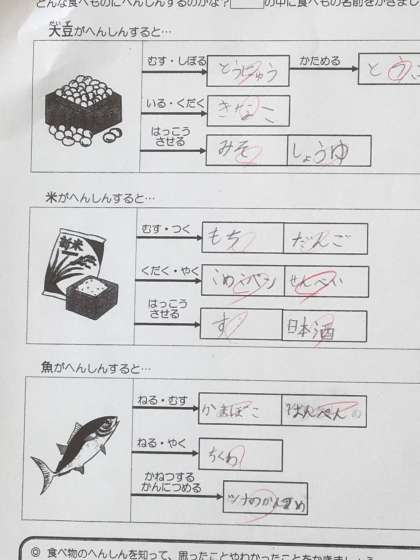 どんな食べものにへんしんするのかな？　の中に食べもの名前をかきまし
大豆がへんしんすると…
むす・しぼる とうにゅう かためる とう
いる・くだく きなこ
はっこう
させる
みそ しょうゆ
米がへんしんすると…
新米
むす・つく もち だんご
くだく・やく こめこパン せんべい
はっこう
させる
す 日本酒
魚がへんしんすると…
ねる・むす かまぼこ はんぺん
ねる・やく ちくわ
かねつする
かんにつめる
ツナのかんづめ
◎ 食べ物のへんしんを知って、思ったことやわかったことをかきましょう